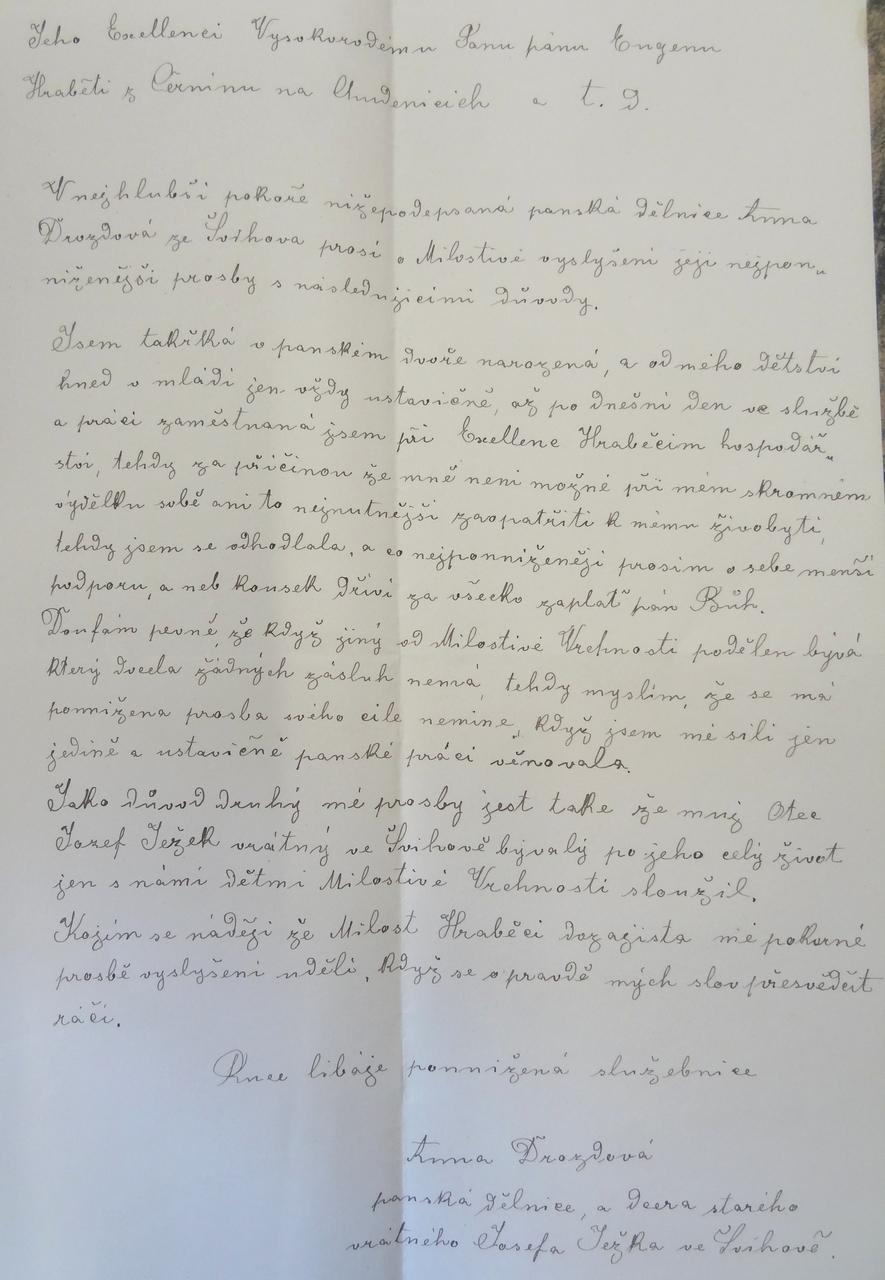 Jeho Exellenci Vysokorodému Panu pánu Eugenu
Hraběti z Černinu na Chudenicích a t. d.
V nejhlubší pokoře nížepodepsaná panská dělnice Anna
Drozdová ze Švihova prosí o Milostivé vyslyšení její nejpon„
níženější prosby s následujícími důvody.
Jsem takřká v panském dvoře narozená, a od mého dětství
hned v mládí jen vždy ustavičně, až po dnešní den ve službě
a práci zaměstnaná jsem při Exellenc Hraběcím hospodář„
ství, tehdy za příčinou že mně není možné při mém skromném
výdělku sobě ani to nejnutnější zaopatřiti k mému živobytí,
tehdy jsem se odhodlala, a co nejponníženěji prosím o sebe menší
podporu, a neb kousek dříví za všecko zaplať pán Bůh.
Doufám pevně, že když jiný od Milostivé Vrchnosti podělen bývá
který docela žádných zásluh nemá, tehdy myslím, že se má
ponnížena prosba svého cíle nemine„ když jsem mé síli jen
jedině a ustavičně panské práci věnovala.
Jako důvod druhý mé prosby jest take že muj Otec
Jozef Ježek vrátný ve Švihově bývalý po jeho celý život
jen s námi dětmi Milostivé Vrchnosti sloužil.
Kojím se náději že Milost Hraběcí dozajista mé pokorné
prosbě vyslyšení udělí, když se o pravdě mých slov přesvědčit
ráčí.
Ruce líbaje ponnížená služebnice
Anna Drozdová
panská dělnice, a dcera starého
vrátného Josefa Ježka ve Švihově.